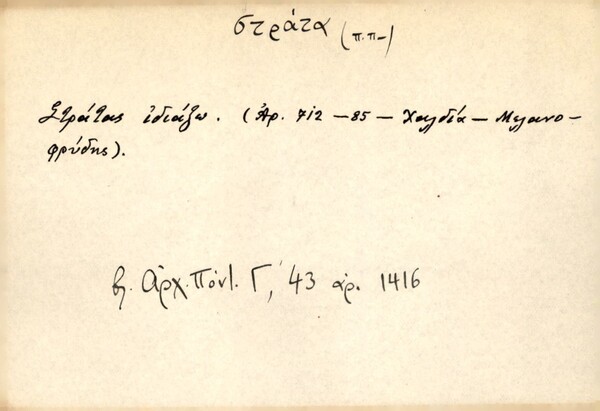 στράτα (π.π-)
Στράτας ἰδιάζω. (Ἀρ. 712 - 85 - Χαλδία - Μελανο-
φρύδης).
βλ. Ἀρχ. Πόντ. Γ', 43 ἀρ. 1416